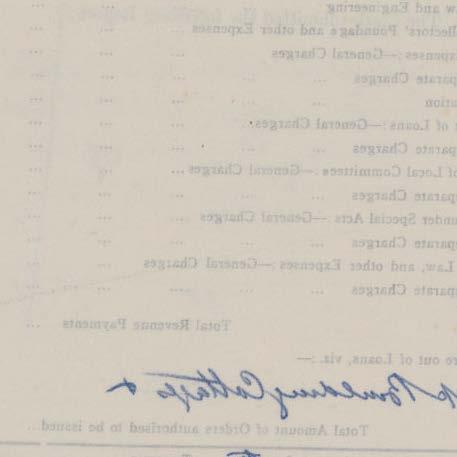 w and Engineering ...
llectors' Poundage and other Expenses ...
xpenses :—General Charges ...
parate Charges ...
ation ...
t of Loans :—General Charges ...
parate Charges ...
of Local Committees :—General Charges ...
parate Charges ...
under Special Acts :—General Charges ...
parate Charges ...
Law, and other Expenses :—General Charges ...
parate Charges ...
Total Revenue Payments ...
re out of Loans, viz. :—
Building Cottages &
Total Amount of Orders authorised to be issued...